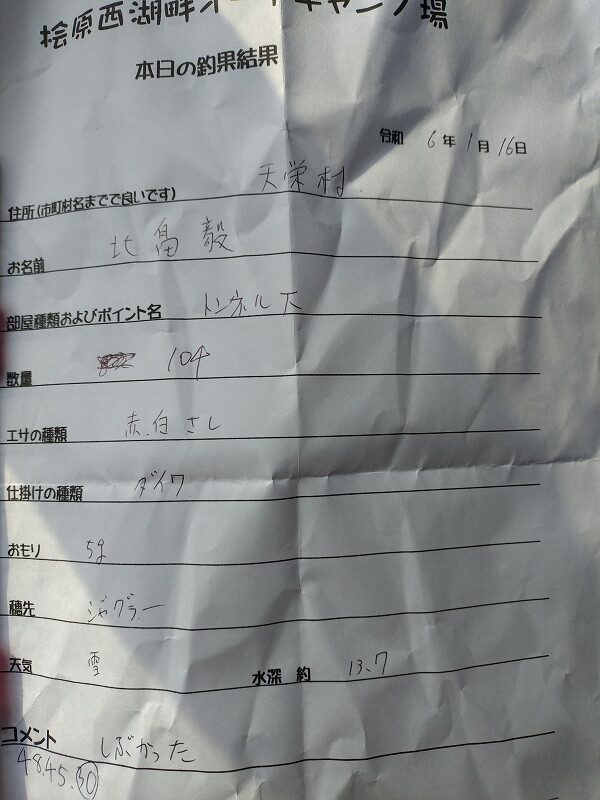 桧原西湖畔オートキャンプ場
本日の釣果結果
令和 6年 1月 16日
住所(市町村名までで良いです) 天栄村
お名前 北畠毅
部屋種類およびポイント名 トンネル下
数量 104
エサの種類 赤.白さし
仕掛けの種類 ダイワ
おもり 5g
穂先 ジャグラー
天気 雪 水深 約 13.7
コメント しぶかった
48.45.30